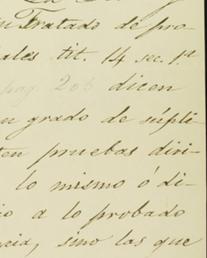 un Tratado de pro-
ales tit. 14 sec. 1ª
pag. 203 dicen
n grado de súpli-
ten pruebas diri-
lo mismo ó di-
io a lo probado
ncia, sino las que